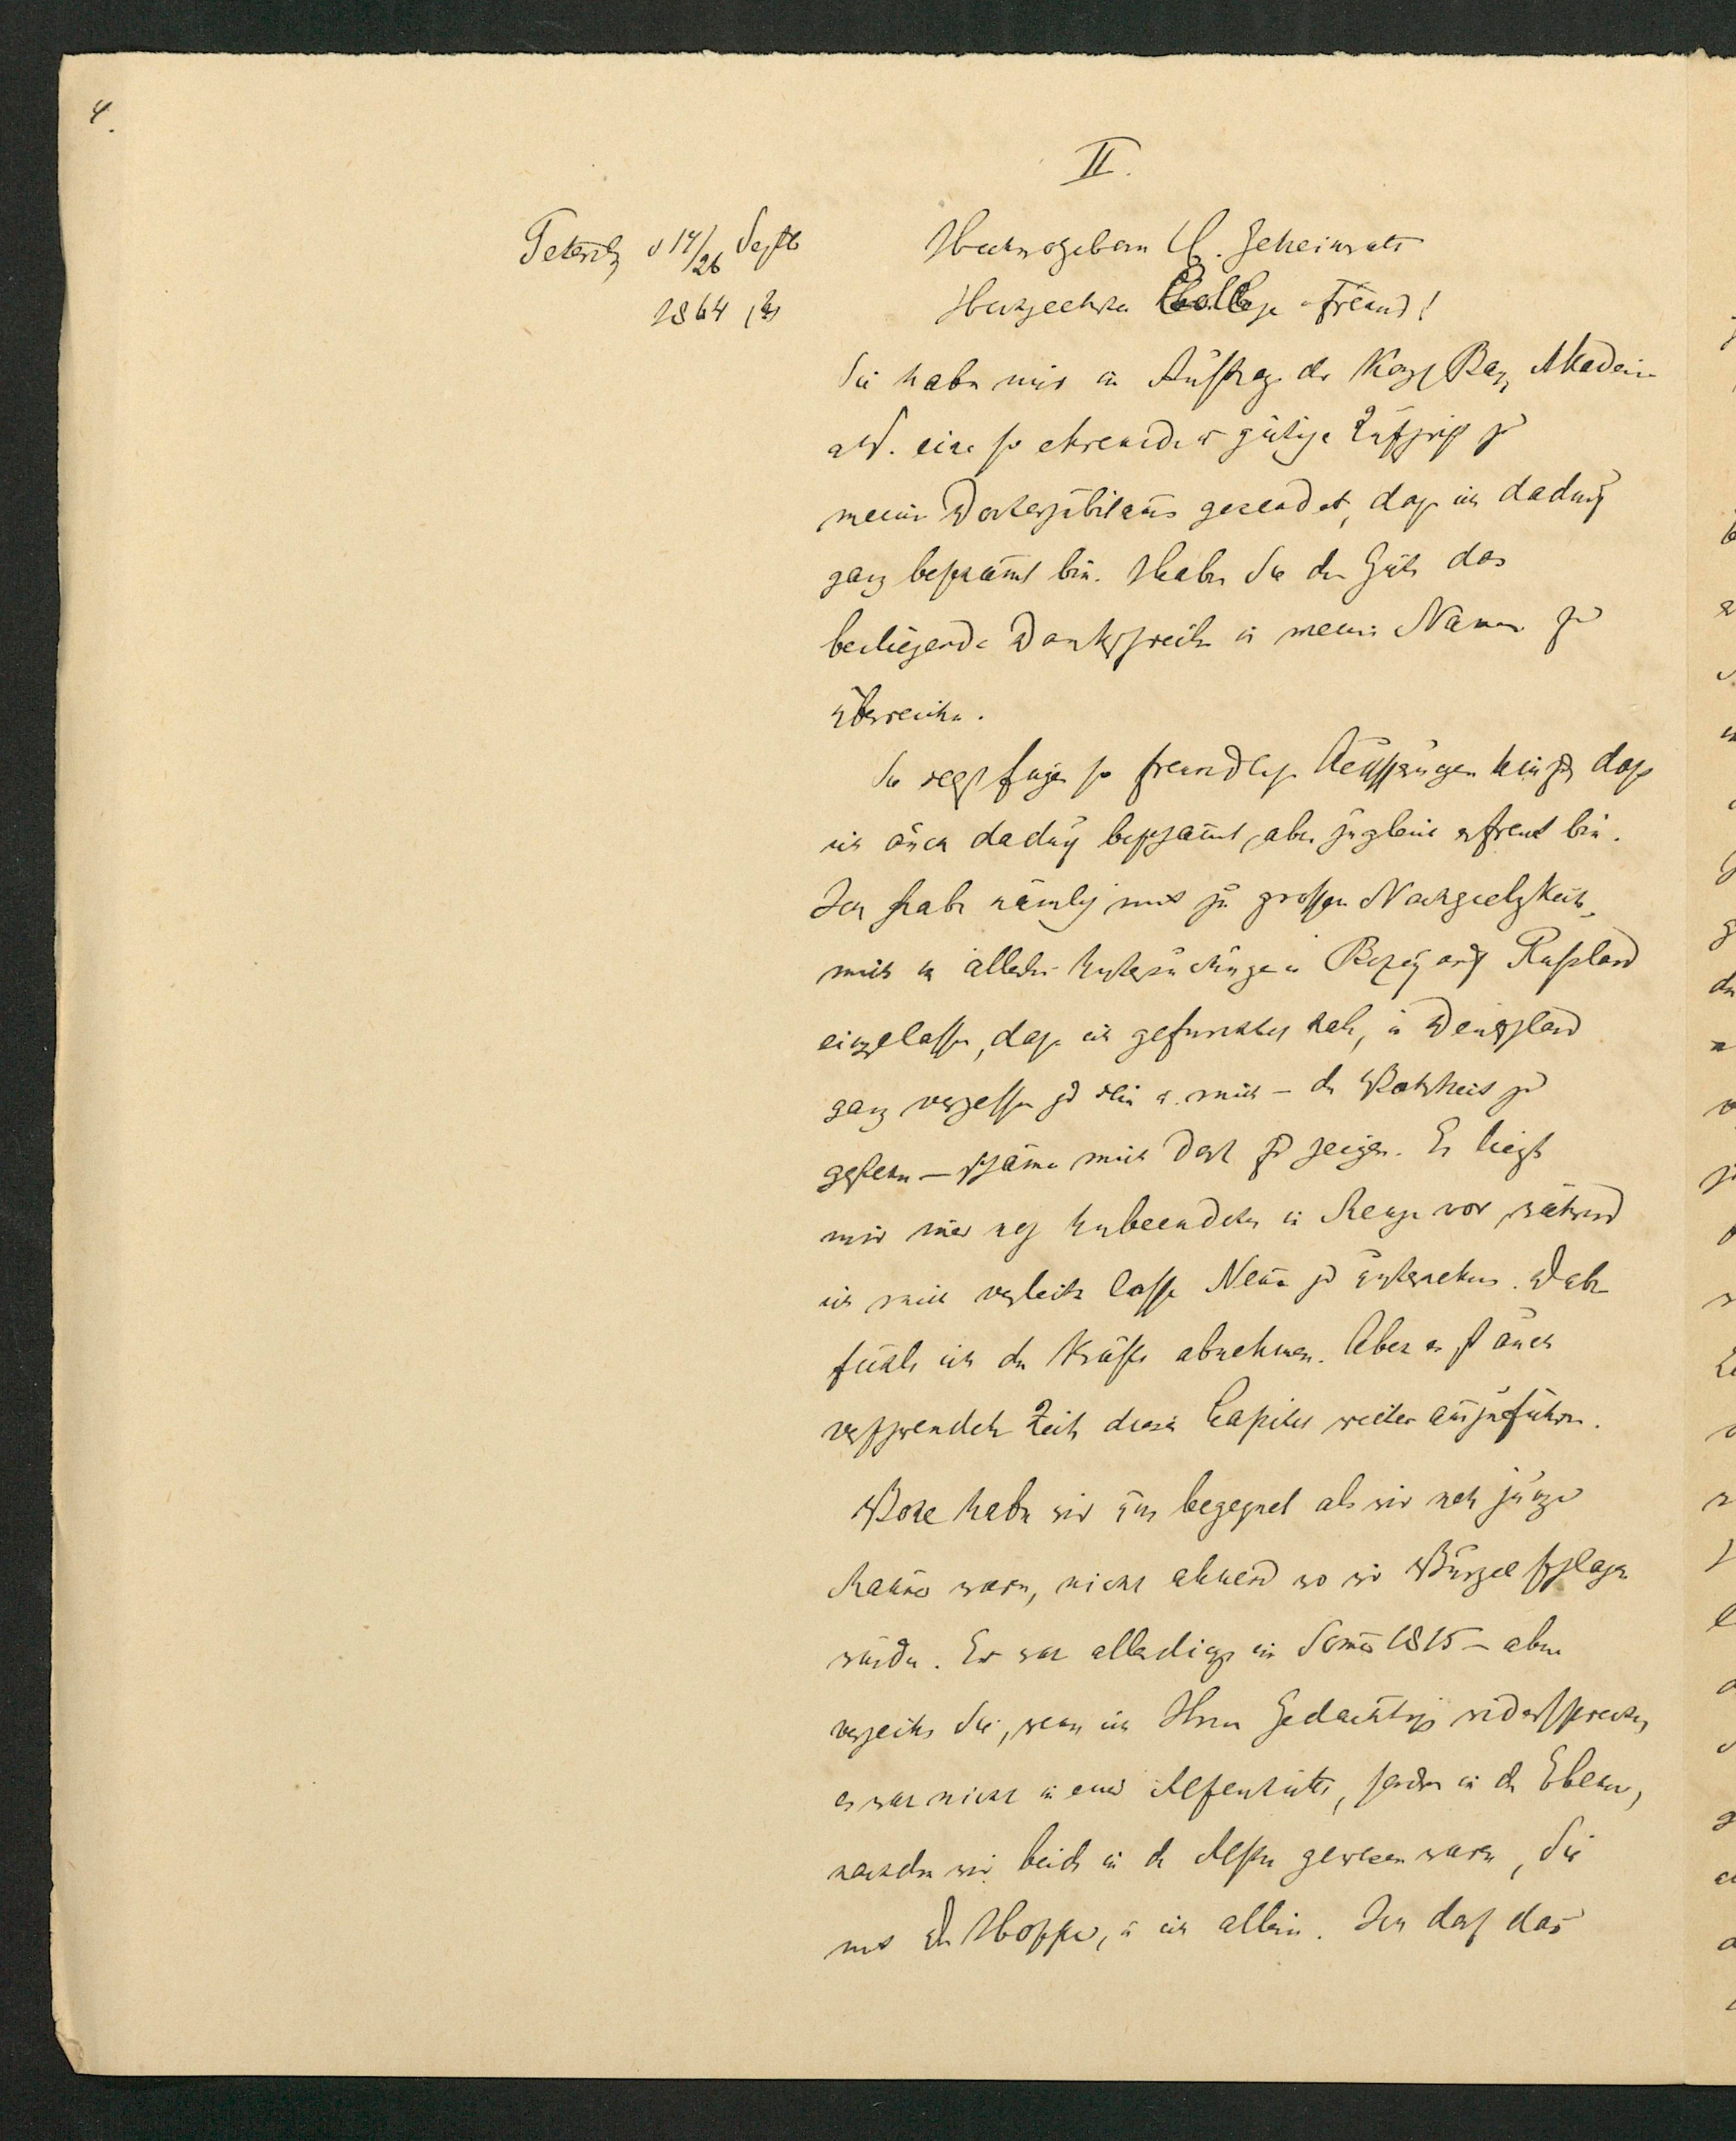 4.
II.
Petersbg d 14/26 Septb
1864
Hochwohlgeborn H. Geheimrath
Hochgeehrter College u Freund!
Sie haben mir im Auftrage der Kgl Bay Akademie
d W. eine so ehrende u gütige Zuschrift zu
meinem Doctorjubiläum gesendet, daß ich dadurch
ganz beschämt bin. Haben Sie die Güte das
beiliegende Dankschreiben in meinem Namen zu
überreichen.
Sie selbst fügen so freundliche Aeußerungen hinzu daß
ich auch dadurch beschämt, aber zugleich erfreut bin.
Ich habe nämlich mit zu grosser Nachgiebigkeit
mich in allerlei Untersuchungen in Bezug auf Rußland
eingelassen, daß ich gefürchtet habe, in Deutschland
ganz vergessen zu sein u. mich – die Wahrheit zu
gestehen – schäme mich dort zu zeigen. Es liegt
mir immer noch Unbeendetes in Menge vor, während
ich mich verleiten lasse Neues zu unternehmen. Dabei
fühle ich die Kräfte abnehmen. Aber es ist auch
verschwendete Zeit dieses Capitel weiter auszuführen.
Wohl haben wir uns begegnet als wir noch junge
Männer waren, nicht ahnend wo wir Wurzel schlagen
würden. Es war allerdings im Somer 1815 – aber
verzeihen Sie, wenn ich Ihrem Gedächtniß widerspreche,
es war nicht in einer Alpenhütte, sondern in der Ebene,
nachdem wir beide in den Alpen gewesen waren, Sie
mit Dr Hoppe, u ich allein. Ich darf das